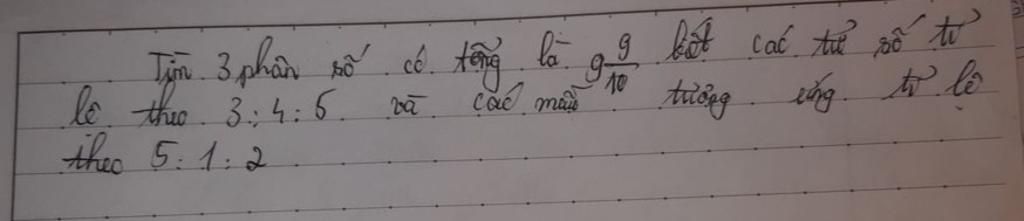 Tìm 3 phân số có tổng là 9 9/10 biết các tử số tỉ
lệ theo 3:4:5 và các mẫu tương ứng tỉ lệ
theo 5:1:2